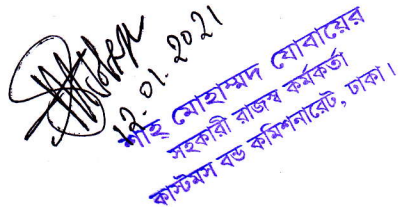 12.01.2021
শাহ মোহাম্মদ যোবায়ের
সহকারী রাজস্ব কর্মকর্তা
কাস্টমস বন্ড কমিশনারেট, ঢাকা।